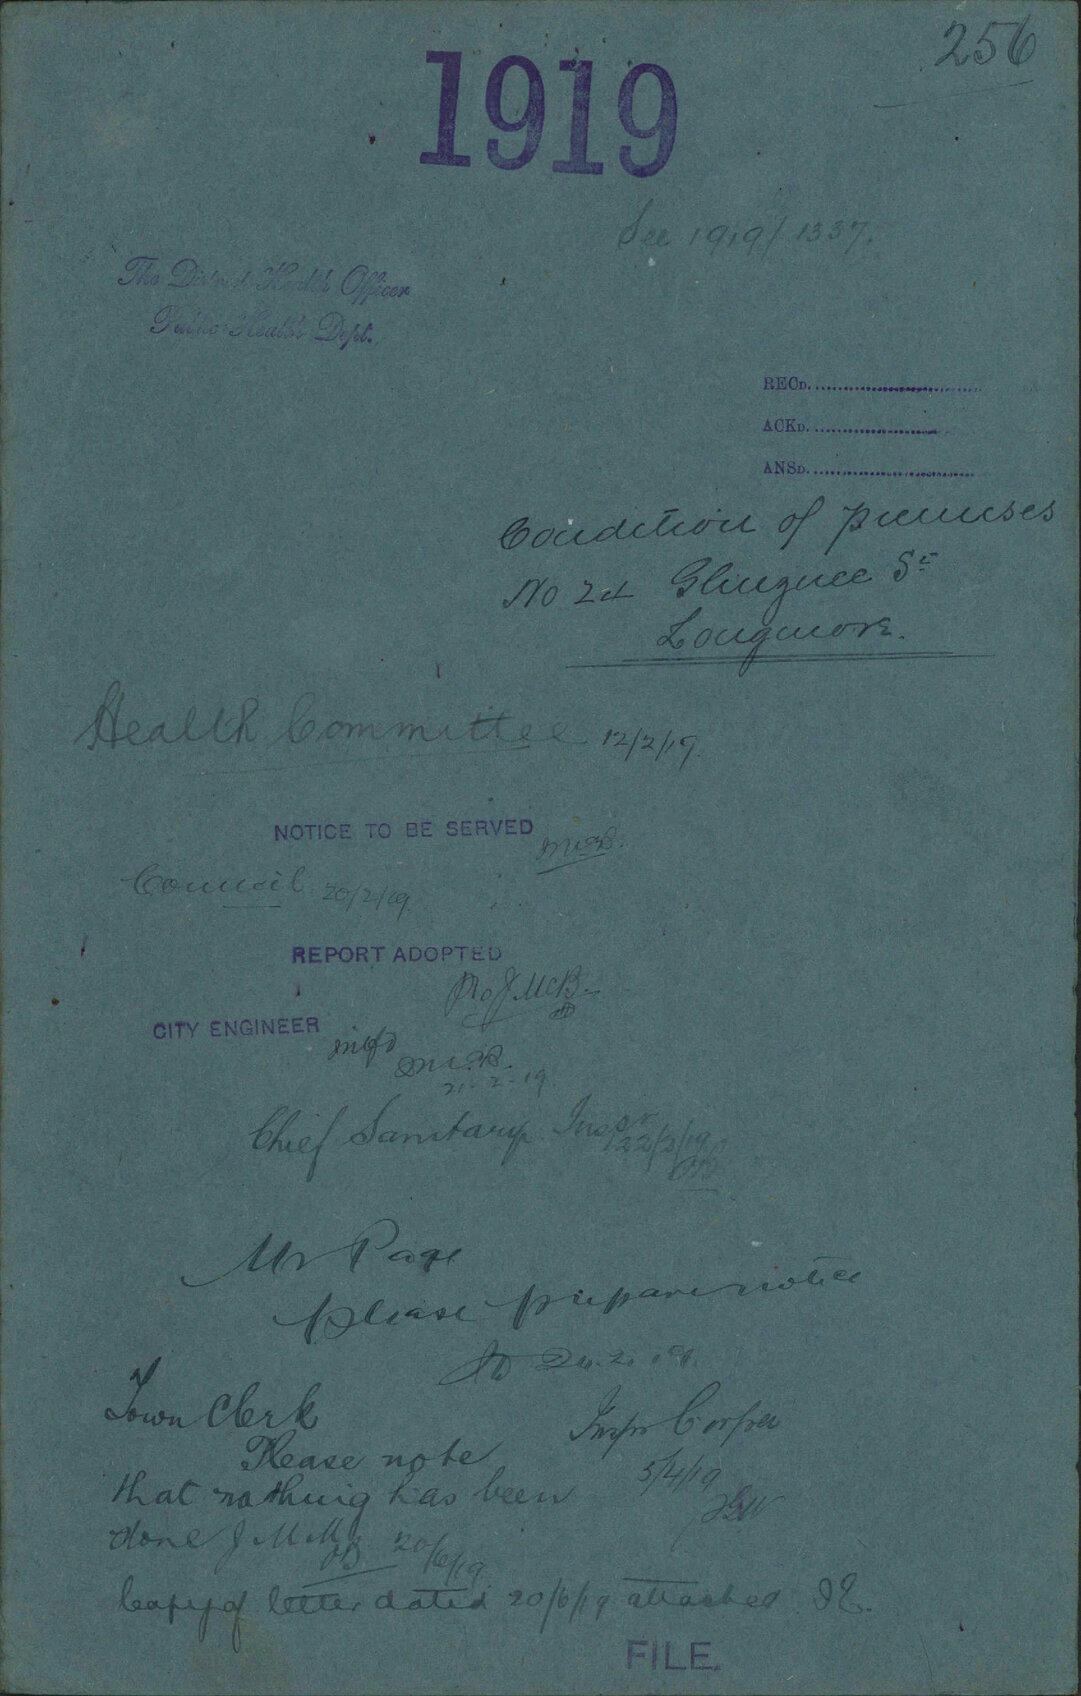 256
1919
See 1919/1337.
The District Health Officer
Public Health Dept.
RECD.
ACKD.
ANSD.
Condition of premises
No 24 St
Longmore.
Health Committee 12/2/19
NOTICE TO BE SERVED
Council 20/2/19
REPORT ADOPTED
CITY ENGINEER
21-2-19
Chief Sanitary Inspr
22/2/19
Mr Page
please prepare notice
Town Clerk
Inspr Corper
Please note
5/4/19
that nothing has been
done 20/6/19
Copy of letter dated 20/6/19 attached
FILE.